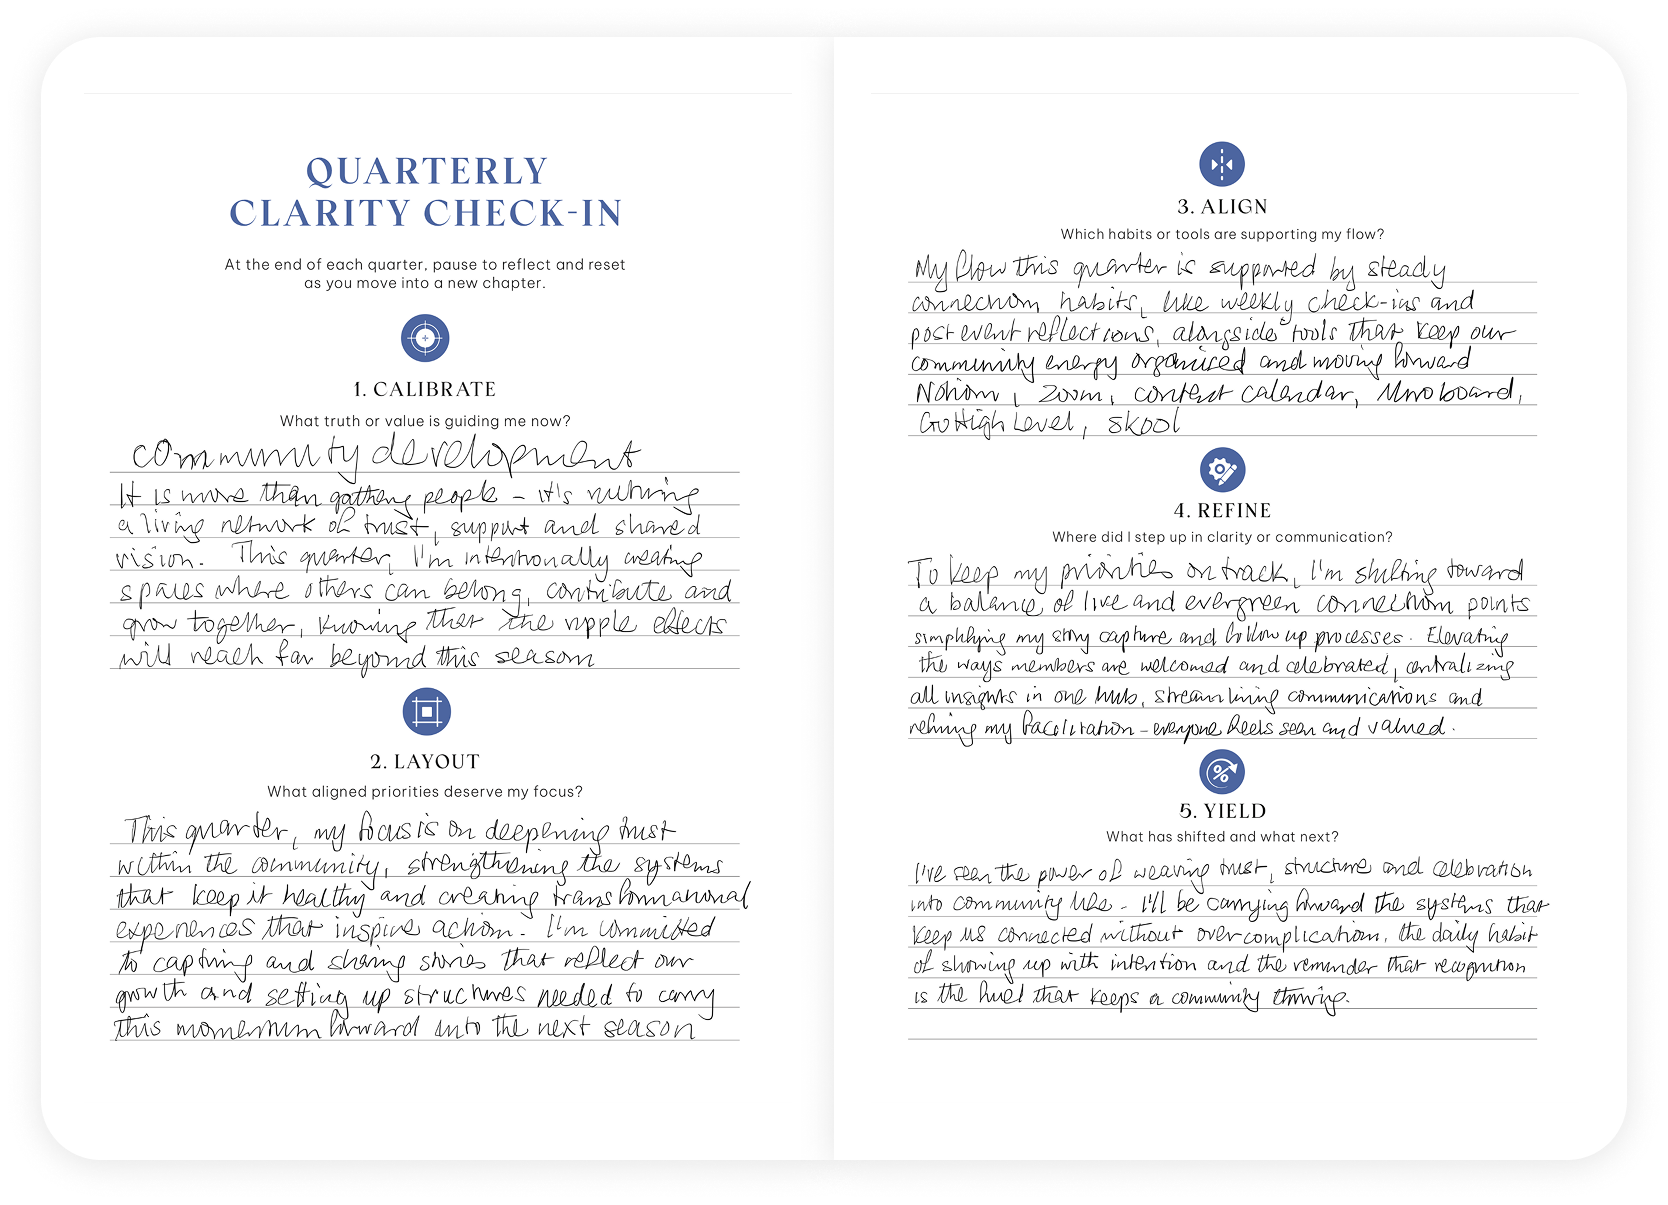 QUARTERLY
CLARITY CHECK-IN
At the end of each quarter, pause to reflect and reset
as you move into a new chapter.
1. CALIBRATE
What truth or value is guiding me now?
community development
It is more than gathering people – it's nurturing
a living network of trust, support and shared
vision. This quarter, I'm intentionally creating
spaces where others can belong, contribute and
grow together, knowing that the ripple effects
will reach far beyond this season
2. LAYOUT
What aligned priorities deserve my focus?
This quarter, my focus is on deepening trust
within the community, strengthening the systems
that keep it healthy and creating transformational
experiences that inspire action. I'm committed
to capturing and sharing stories that reflect our
growth and setting up structures needed to carry
this momentum forward into the next season
3. ALIGN
Which habits or tools are supporting my flow?
My flow this quarter is supported by steady
connection habits, like weekly check-ins and
post event reflections, alongside tools that keep our
community energy organised and moving forward
Notion, Zoom, content calendar, Miro board,
Go High Level, Skool
4. REFINE
Where did I step up in clarity or communication?
To keep my priorities on track, I'm shifting toward
a balance of live and evergreen connection points
simplifying my story capture and follow up processes. Elevating
the ways members are welcomed and celebrated, centralizing
all insights in one hub, streamlining communications and
refining my facilitation – everyone feels seen and valued.
5. YIELD
What has shifted and what next?
I've seen the power of weaving trust, structure and celebration
into community life – I'll be carrying forward the systems that
keep us connected without overcomplication, the daily habit
of showing up with intention and the reminder that recognition
is the fuel that keeps a community thriving.